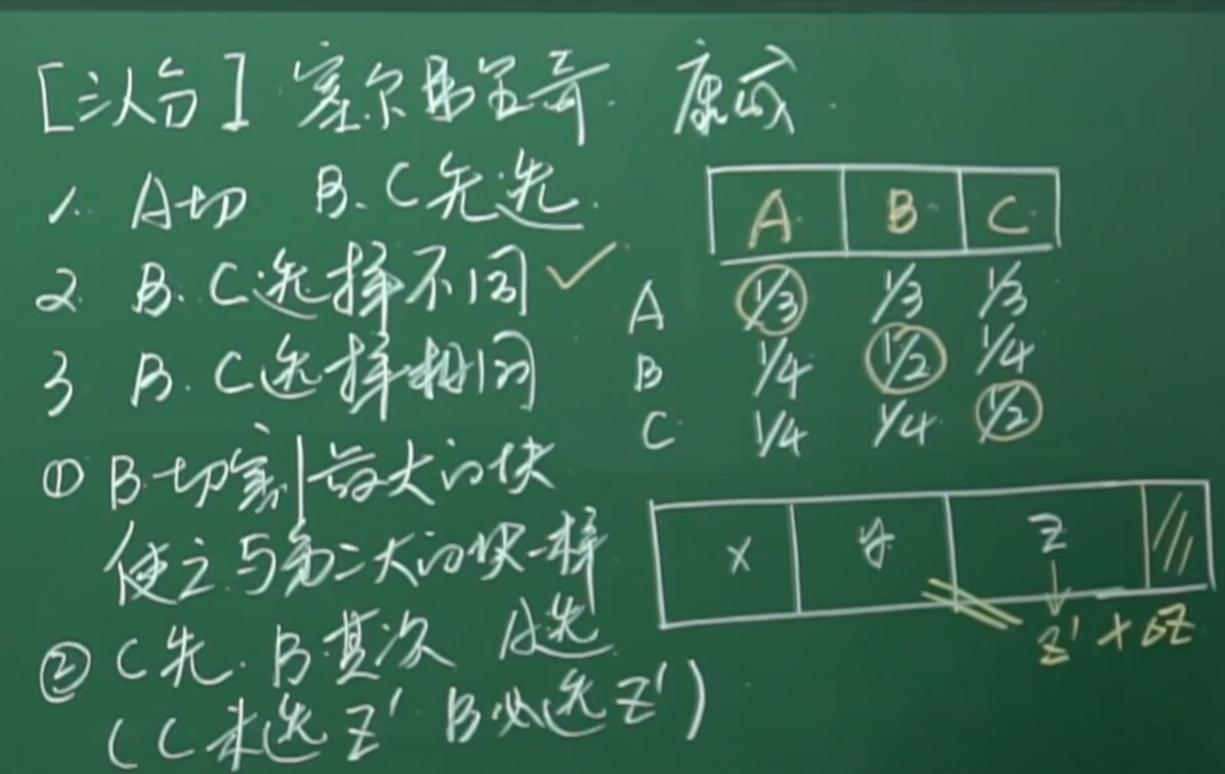 [三人分] 塞尔弗里奇 康威
1. A切 B.C先选.
2. B.C选择不同 ✓
3 B.C选择相同
① B切割最大的块
使之与第二大的块一样
② C先.B其次 A选
(C未选Z' B必选Z')
A B C
A 1/3 1/3 1/3
B 1/4 1/2 1/4
C 1/4 1/4 1/2
x y z
z' + δz